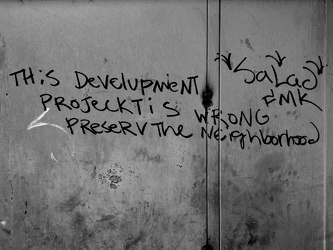 THiS DEVELUPMENT
PROJECKT iS WRONG
PRESERV The Neighborhood
SaLaD
FMK